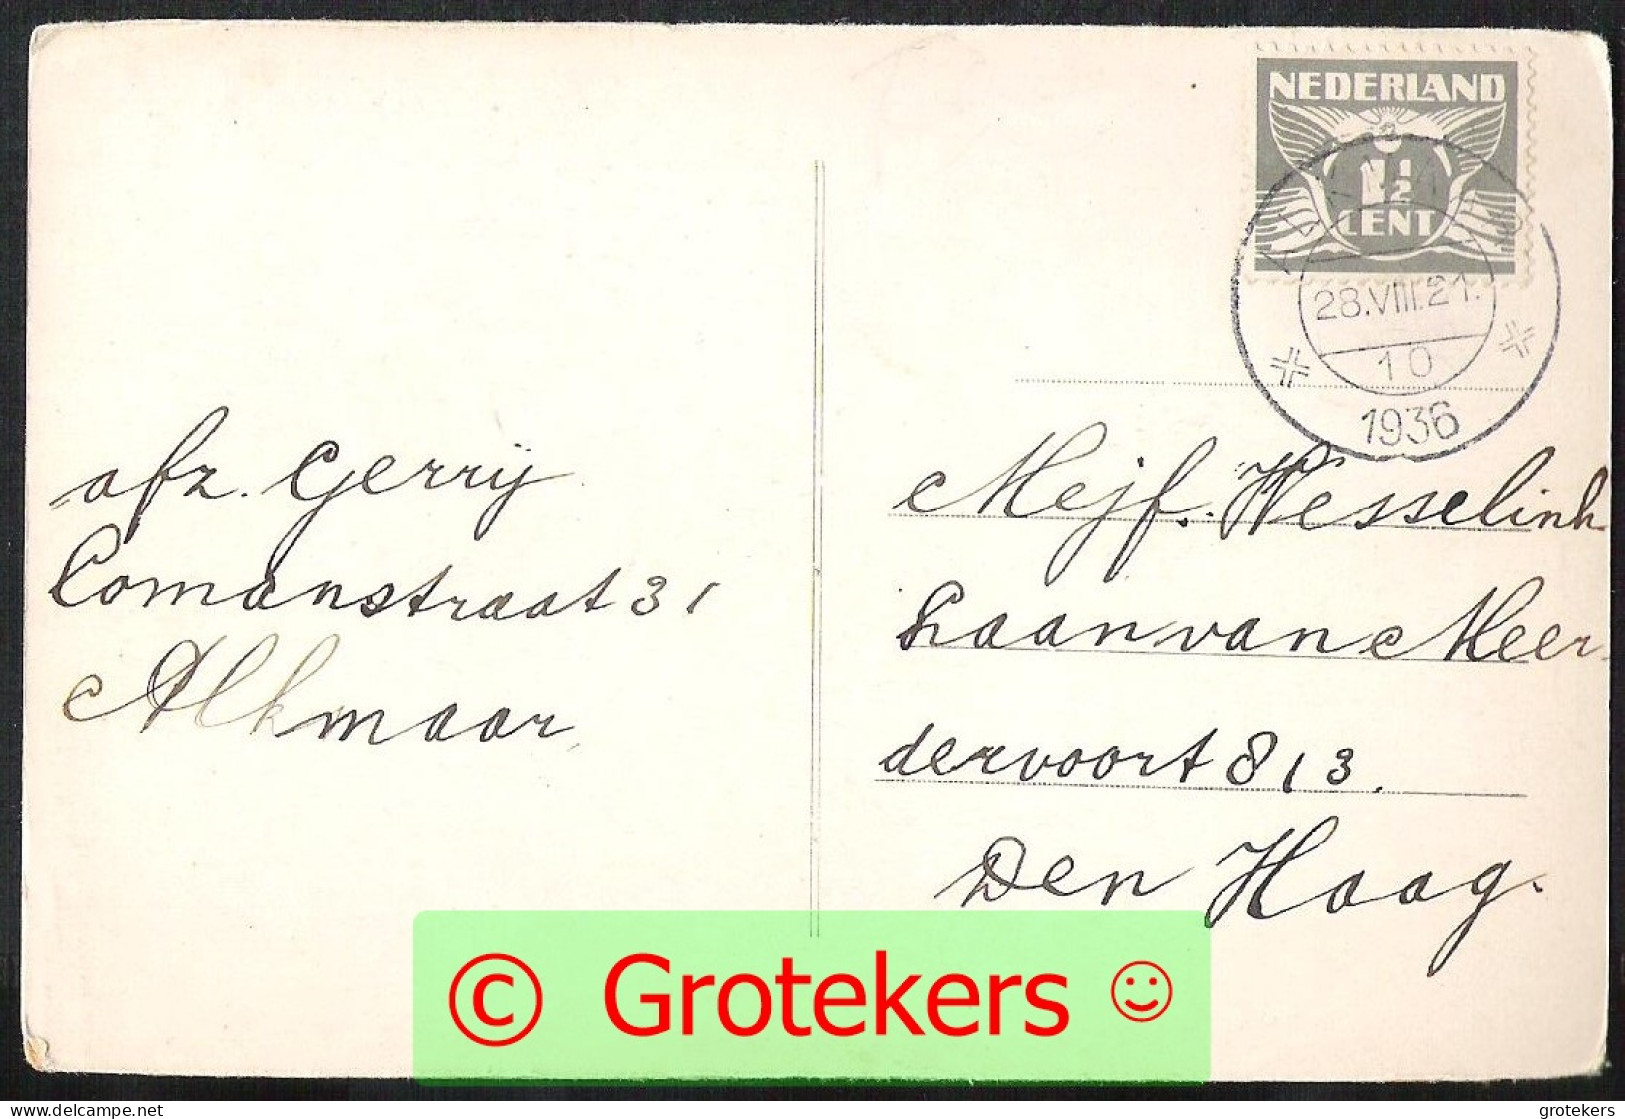 NEDERLAND
1½
CENT
ALKMAAR
28.VIII.21.
10
1936
afz. Gerrij
Comanstraat 31
Alkmaar
Mejf. Wesselink
Laan van Meer
dervoort 813.
Den Haag.
© Grotekers ☺
delcampe.net
grotekers